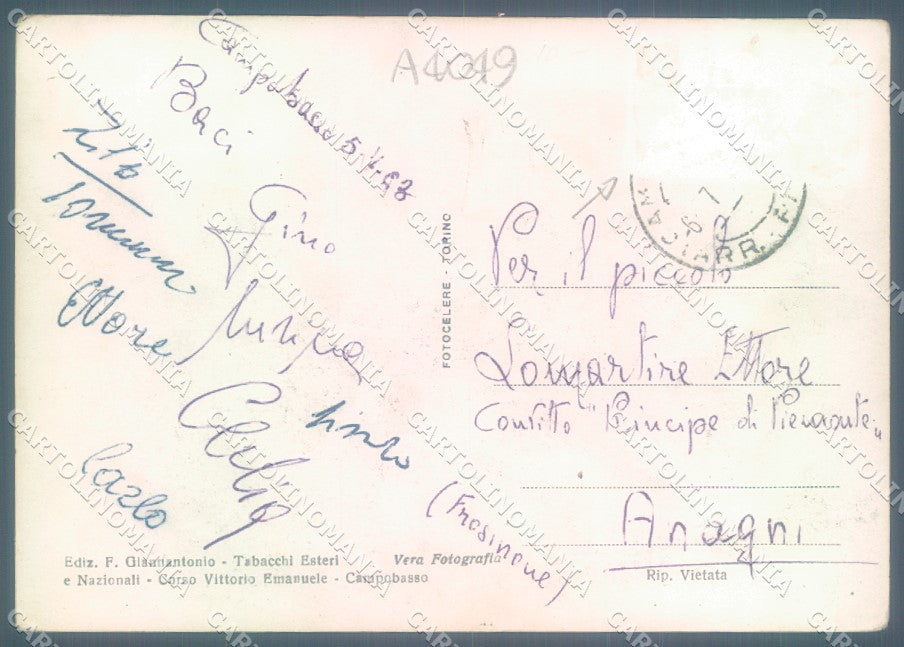 A4049
Campobasso 5.
Baci
Zio
Tommaso
Ettore
Gino
Carlo
Per il piccolo
Lomartire Ettore
Convitto "Principe di Piemonte"
Anagni
(Frosinone)
FOTOCELERE - TORINO
Ediz. F. Giannantonio - Tabacchi Esteri
e Nazionali - Corso Vittorio Emanuele - Campobasso
Vera Fotografia
Rip. Vietata
CARTOLINOMANIA